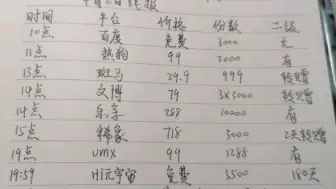 时间 平台 价格 份数 二级
10点 百度 免费 3000 无
11点 热狗 99 2000 有
13点 斑马 29.9 999 转赠
14点 文博 79 3x3000 转赠
14点 乐享 288 10000 有
15点 稀象 718 3000 2天转赠
19点 umx 99 1288 有
19:59 Hi元宇宙 免费 3500 180天